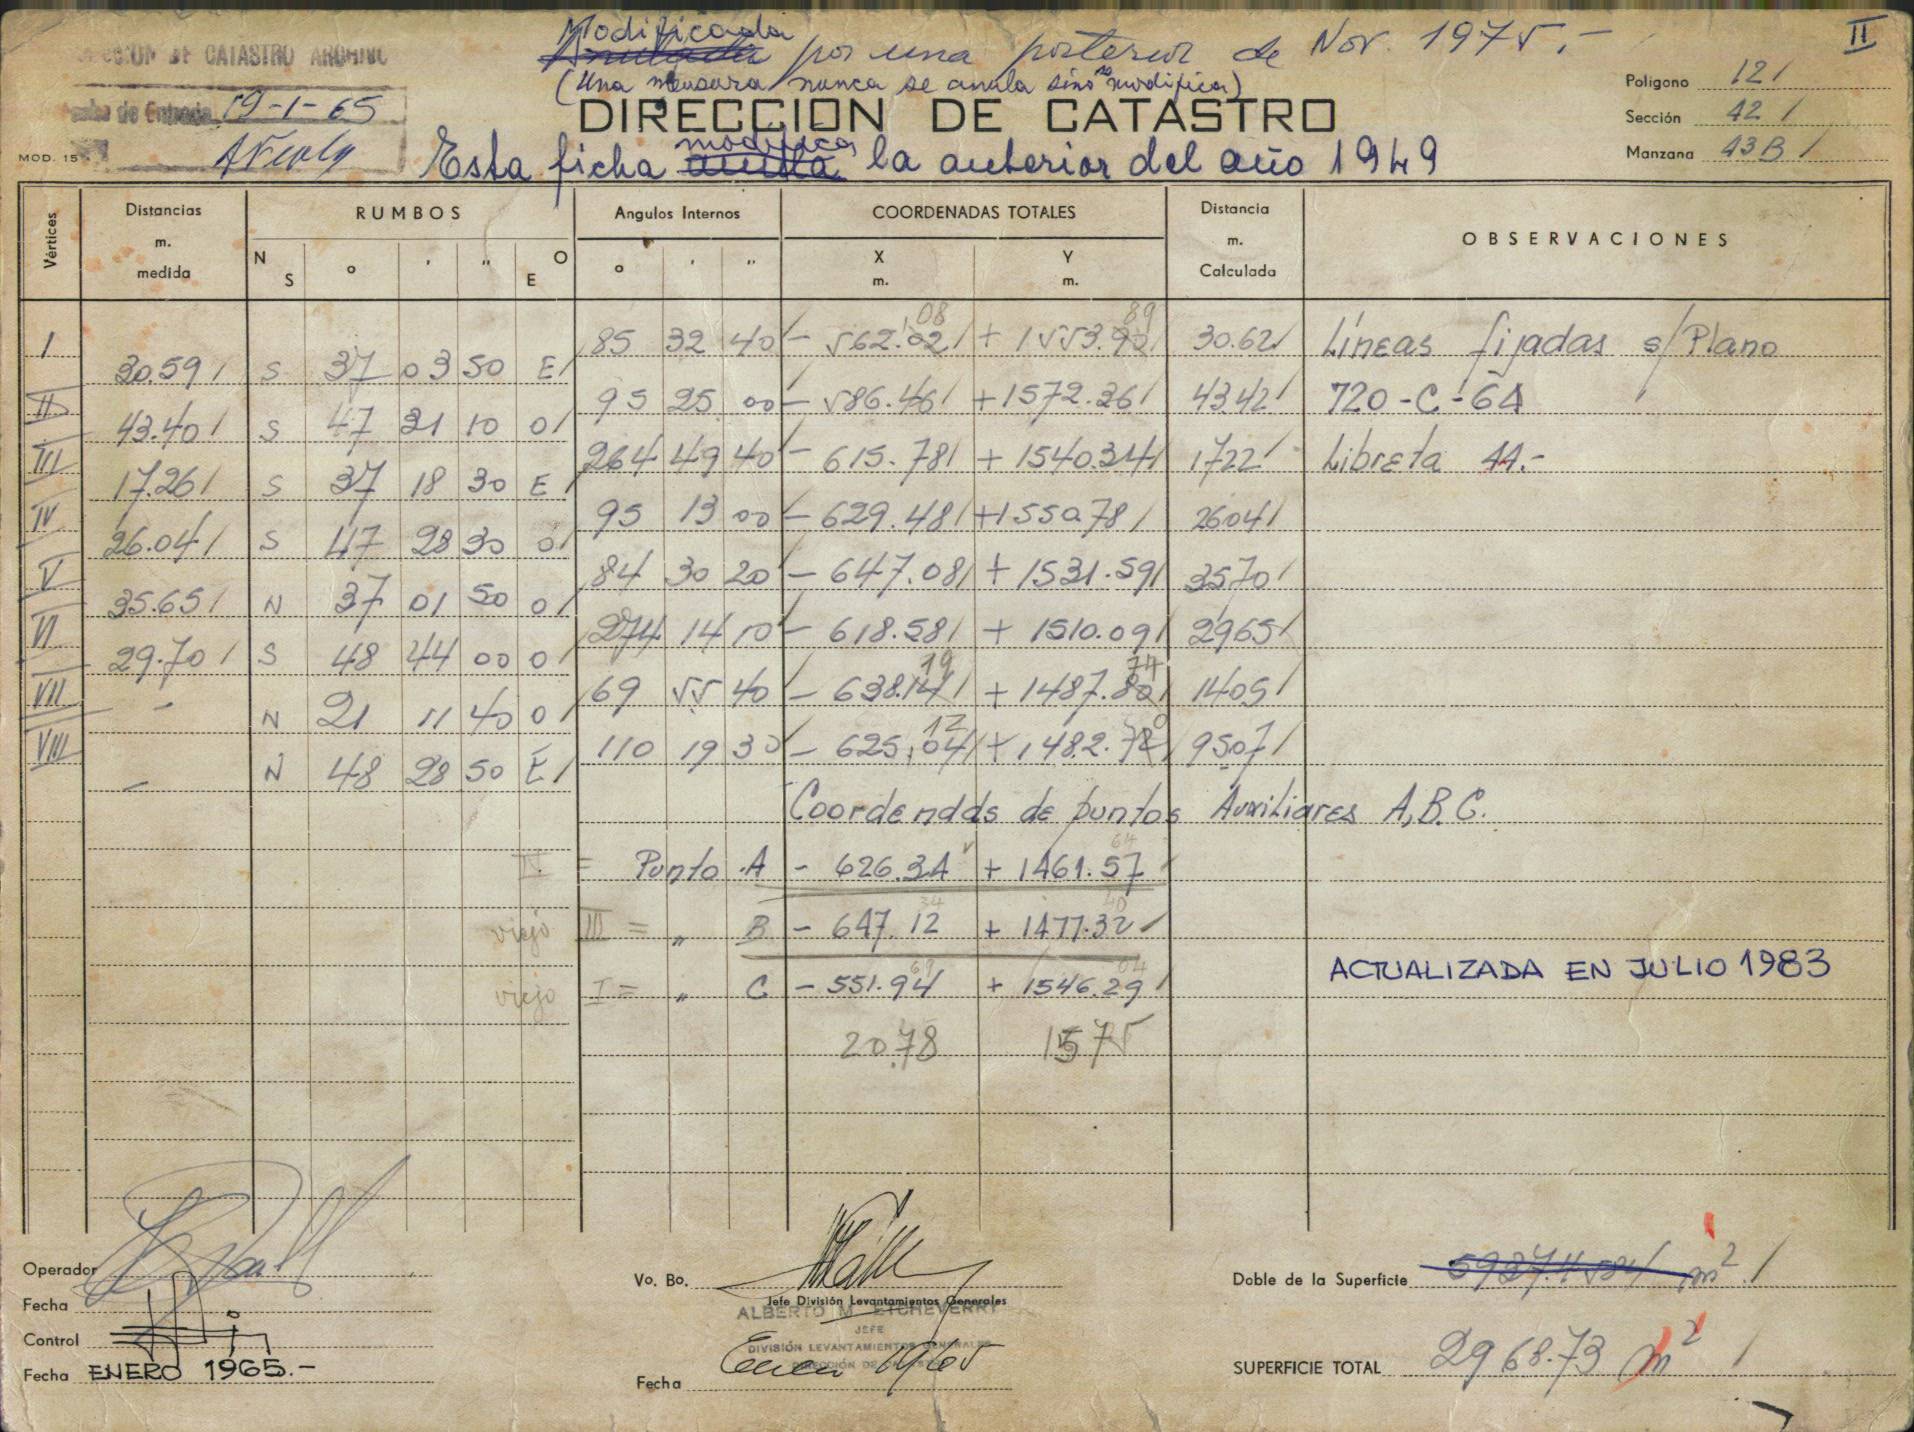 Modificada
Anulada por una posterior de Nov. 1975.-
II
(Una mensura nunca se anula sino se modifica)
DIRECCION DE CATASTRO ARCHIVO
19-1-65
MOD. 15
DIRECCION DE CATASTRO
Poligono 12/
Sección 42/
Manzana 43B/
modifica
Esta ficha anula la anterior del año 1949
Vértices
Distancias m. medida
RUMBOS
N S ° ' '' O E
Angulos Internos
° ' ''
COORDENADAS TOTALES
X m. Y m.
Distancia m. Calculada
OBSERVACIONES
08 89
I 85 32 40 - 562.02/ + 1553.90/ 30.62/ Líneas fijadas s/Plano
30.59/ S 37 03 50 E/
II 95 25 00 - 586.46/ + 1572.36/ 43.42/ 720-C-64
43.40/ S 47 31 10 O/
III 264 49 40 - 615.78/ + 1540.34/ 1722/ Libreta 44.-
17.26/ S 37 18 30 E/
IV 95 13 00 - 629.48/ + 1550.78/ 2604/
26.04/ S 47 28 30 O/
V 84 30 20 - 647.08/ + 1531.59/ 3570/
35.65/ N 37 01 50 O/
VI 274 14 10 - 618.58/ + 1510.09/ 2965/
29.70/ S 48 44 00 O/
19 74
VII 69 55 40 - 638.14/ + 1487.80/ 1405/
- N 21 11 40 O/
12 0
VIII 110 19 30 - 625.04/ + 1482.72/ 9507/
- N 48 28 50 E/
Coordendds de puntos Auxiliares A,B.C.
64
IV = Punto A - 626.34 + 1461.57/
34 40
viejo III = " B - 647.12 + 1477.32/
69 04
viejo I = " C - 551.94 + 1546.29/
ACTUALIZADA EN JULIO 1983
20.78 1575
Operador
Fecha
Control
Fecha ENERO 1965.-
Vo. Bo.
Jefe División Levantamientos Generales
ALBERTO M. ETCHEVERRY
JEFE
DIVISIÓN LEVANTAMIENTOS GENERALES
DIRECCIÓN DE
Fecha Enero 1965
Doble de la Superficie m²./
SUPERFICIE TOTAL 2968.73 m² /